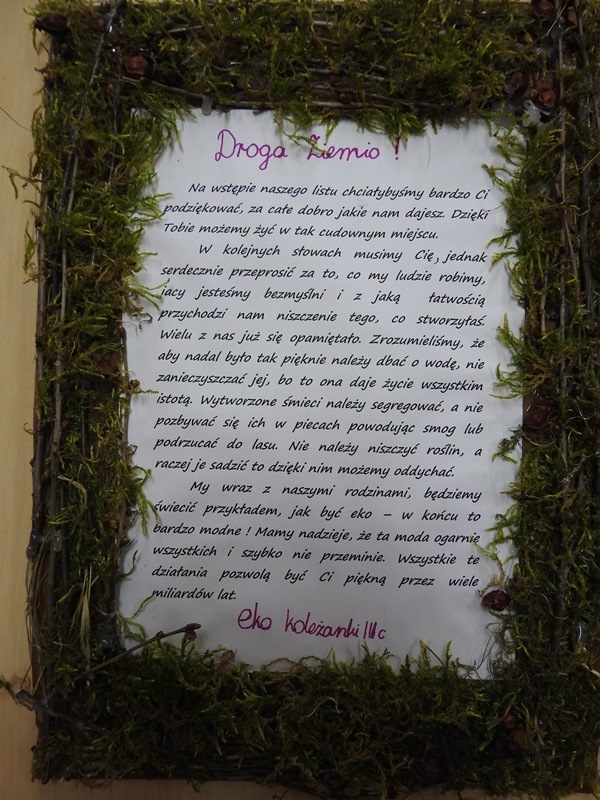 Droga Ziemio !
Na wstępie naszego listu chciałybyśmy bardzo Ci
podziękować, za całe dobro jakie nam dajesz. Dzięki
Tobie możemy żyć w tak cudownym miejscu.
W kolejnych słowach musimy Cię, jednak
serdecznie przeprosić za to, co my ludzie robimy,
jacy jesteśmy bezmyślni i z jaką łatwością
przychodzi nam niszczenie tego, co stworzyłaś.
Wielu z nas już się opamiętało. Zrozumieliśmy, że
aby nadal było tak pięknie należy dbać o wodę, nie
zanieczyszczać jej, bo to ona daje życie wszystkim
istotą. Wytworzone śmieci należy segregować, a nie
pozbywać się ich w piecach powodując smog lub
podrzucać do lasu. Nie należy niszczyć roślin, a
raczej je sadzić to dzięki nim możemy oddychać.
My wraz z naszymi rodzinami, będziemy
świecić przykładem, jak być eko – w końcu to
bardzo modne ! Mamy nadzieje, że ta moda ogarnie
wszystkich i szybko nie przeminie. Wszystkie te
działania pozwolą być Ci piękną przez wiele
miliardów lat.
eko koleżanki III c